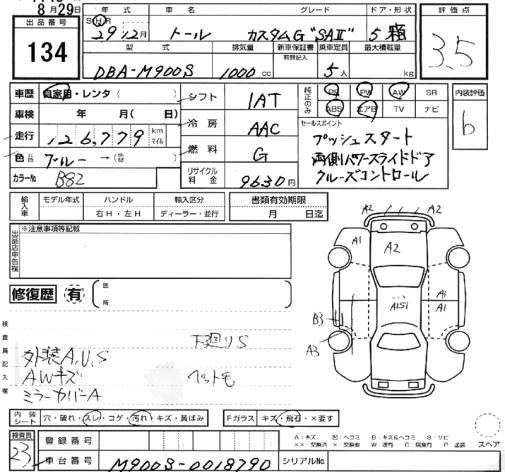 8月29日
出品番号
134
年式 車名 グレード ドア・形状
S H R 29年12月 トール カスタムG "SAII" 5 箱
評価点
3.5
型式 排気量 新車保証書 乗車定員 最大積載量
有効記載簿
DBA-M900S 1000cc 5人 kg
車歴 自家用・レンタ ( )
車検 年 月 ( 日)
走行 126,779 km マイル
色 元色 ブルー → (色替 )
カラーNo B82
シフト 1AT
冷房 AAC
燃料 G
リサイクル料金 9630円
純正のみ PS PW AW SR
ABS エアB TV ナビ
内装評価
b
セールスポイント
プッシュスタート
両側パワースライドドア
クルーズコントロール
輸入車 モデル年式 ハンドル 輸入区分
右H・左H ディーラー・並行
書類有効期限
月 日迄
出品店申告欄
※注意事項等記載
修復歴 有 箇所
検査員記入欄
外装A,U,S
AWキズ
ミラーカバーA
下回りS
ペットモ
A2 A2
A1 A2 A1
A1S1 A1
B3 A1
A3
内装シート 穴・破れ・スレ・コゲ・汚れ・キズ・黄ばみ
Fガラス キズ・飛石・×要す
A:キズ U:ヘコミ B:キズ&ヘコミ S:サビ
スペア
検査員
23
登録番号
車台番号 M900S-0018790
シリアルNo.